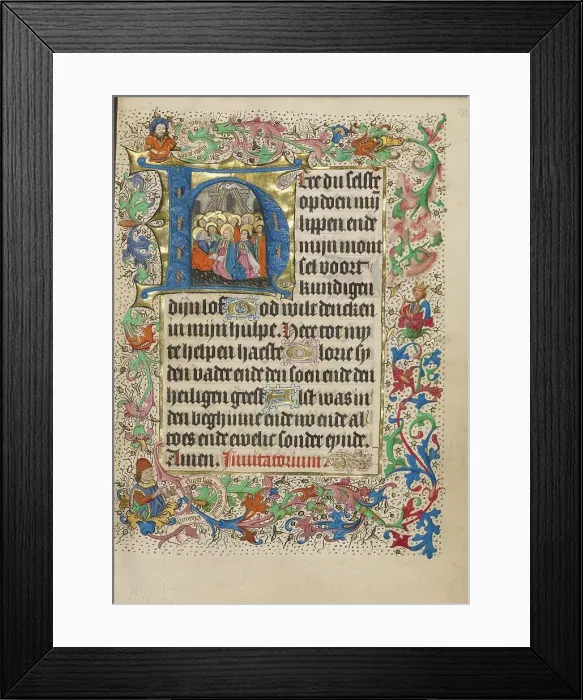 Here du selste
opdoen mij
lippen ende
mijn mont
sel voort
kundigen
dijn lof God wilt dencken
in mijn hulpe. Here tot my
te helpen haeste Glorie sy
den vader ende den soen ende den
heiligen geest Alst was in
den beghinne ende nv ende al
toes ende ewelic sonder eynde.
Amen. Inuitatorium.